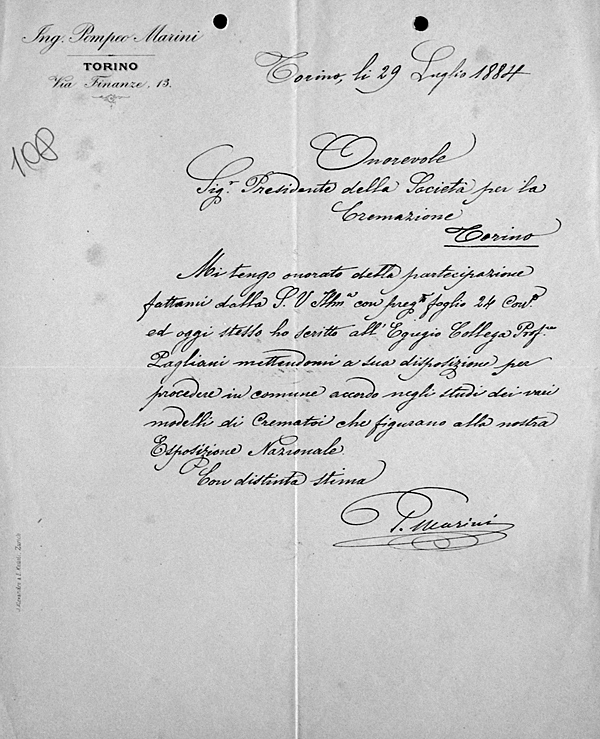 Ing. Pompeo Marini
TORINO
Via Finanze, 13.
Torino, li 29 Luglio 1884
108
Onorevole
Sigr. Presidente della Società per la
Cremazione
Torino
Mi tengo onorato della partecipazione
fattami dalla S. V Illma con pregto foglio 24 Corre
ed oggi stesso ho scritto all'Egregio Collega Profre
Pagliani mettendomi a sua disposizione per
procedere in comune accordo negli studi dei vari
modelli di Crematoi che figurano alla nostra
Esposizione Nazionale
Con distinta stima
P. Marini